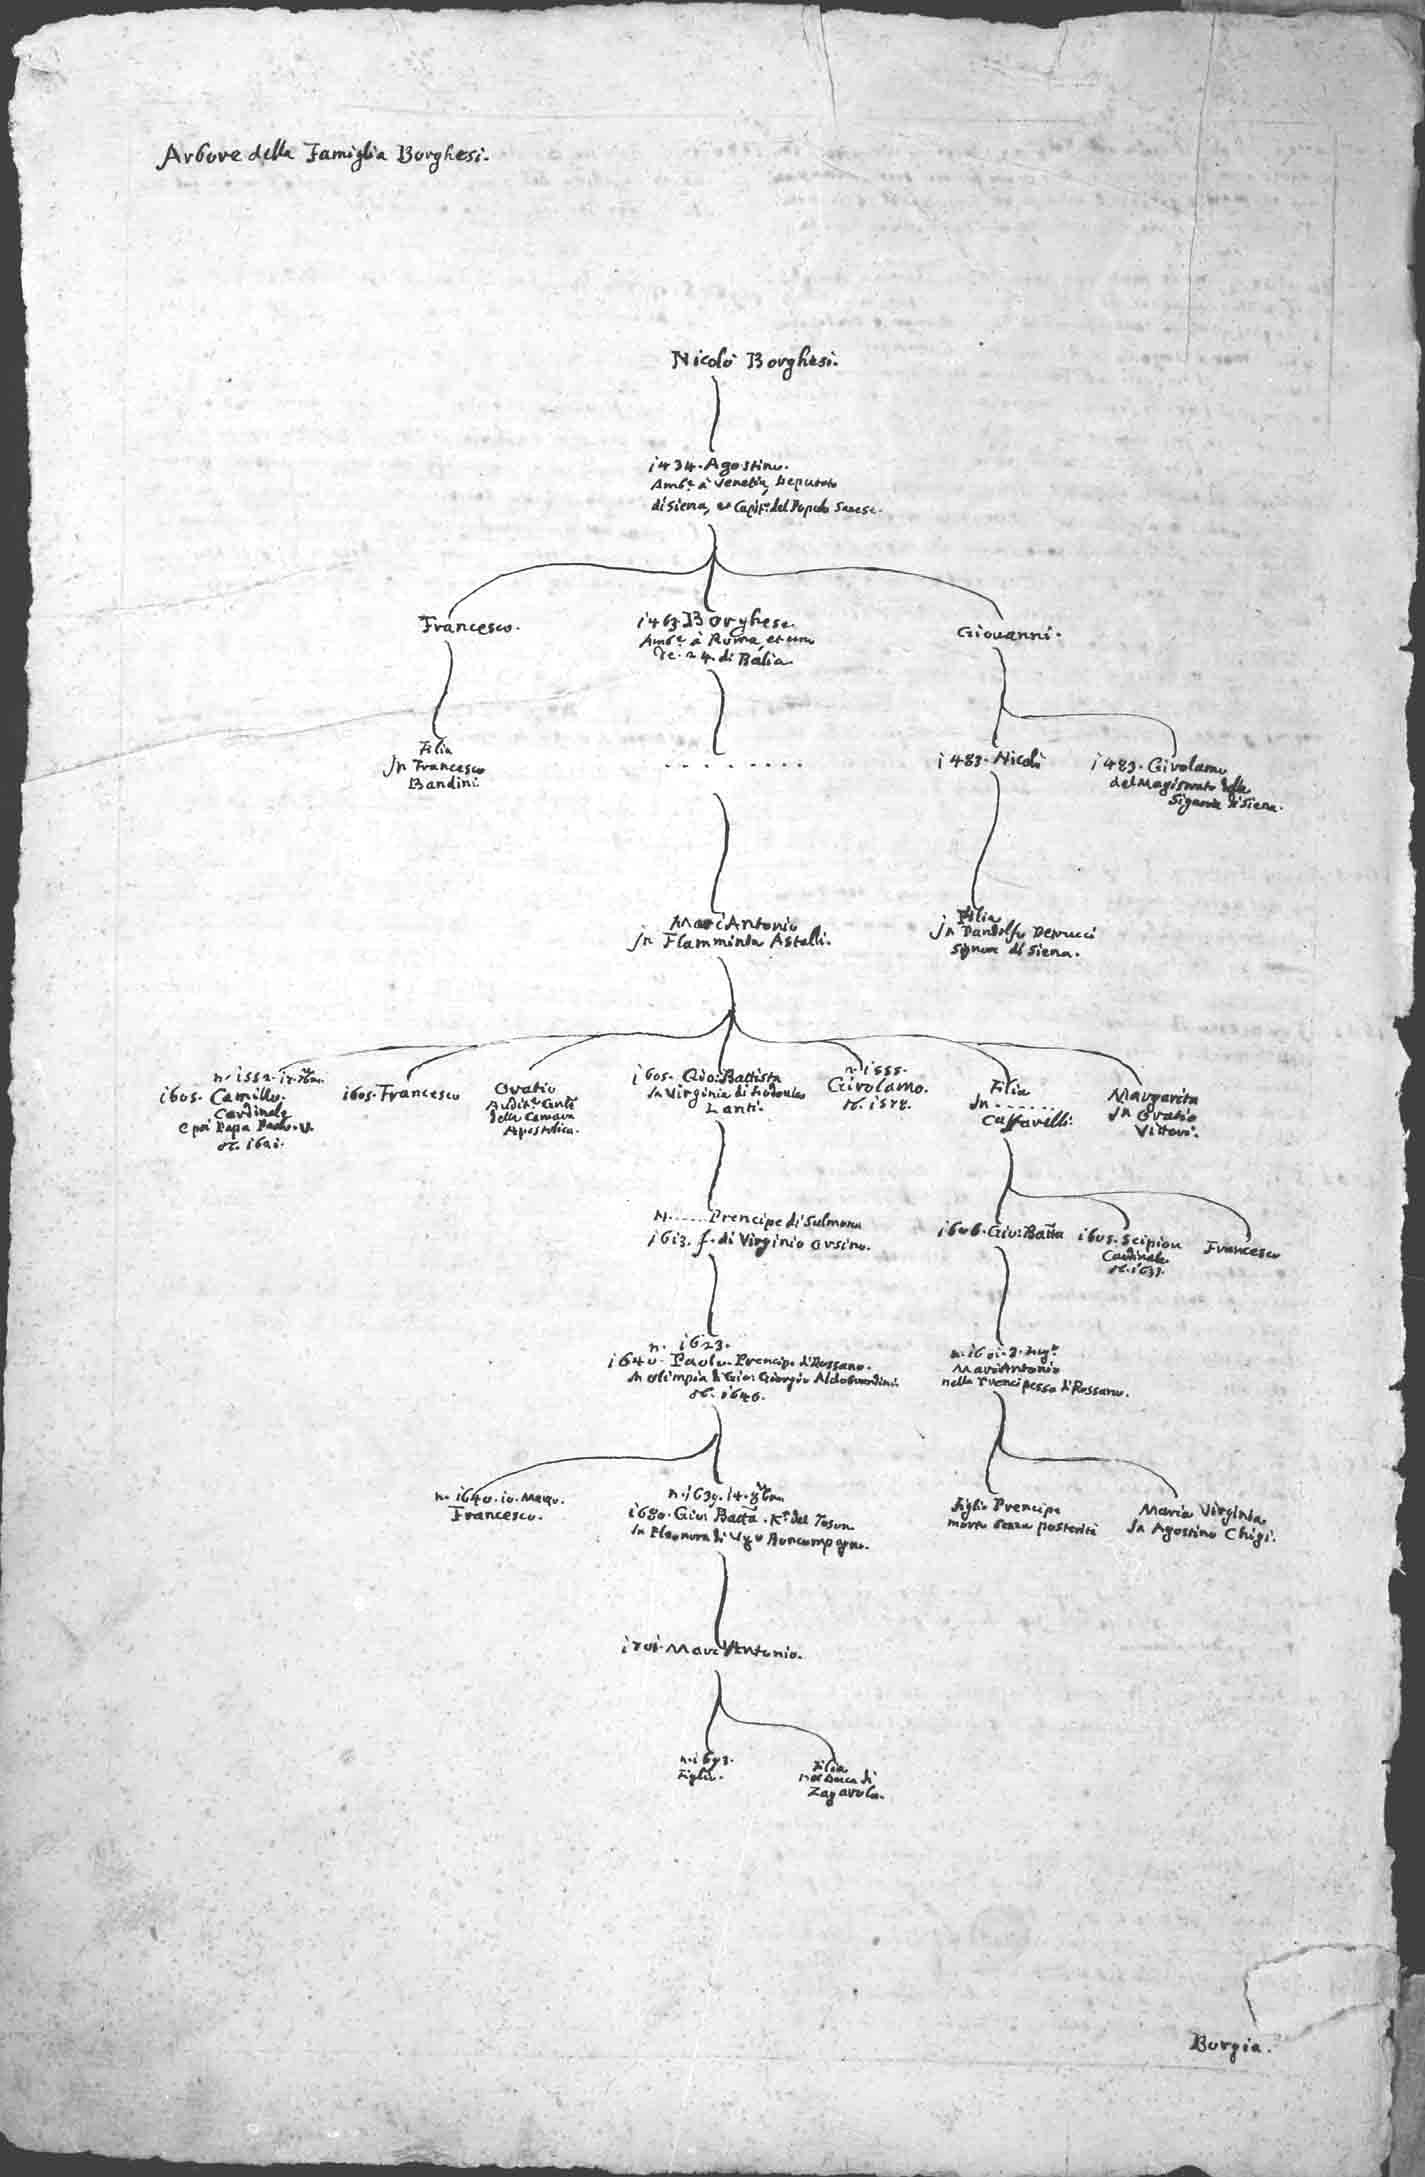 Arbore della Famiglia Borghesi.
Nicolò Borghesi.
1434. Agostino.
Amb.r à Venetia, Deputato
di Siena, et Capit.o del Popolo Sanese.
Francesco.
1463. Borghese.
Amb.r à Roma, et uno
de 24. di Balia.
Giovanni.
Filia
Jn Francesco
Bandini
. . . . . . . .
1483. Nicolò
1483. Girolamo
del Magistrato della
Signoria di Siena.
Marc'Antonio
Jn Flamminia Astalli.
Filia
Jn Pandolfo Petrucci
Signore di Siena.
n. 1552. 17. 7bre.
1605. Camillo.
Cardinale
e poi Papa Paolo. V.
ob. 1621.
1605. Francesco
Oratio
Audit.r
della Camera
Apostolica.
1605. Gio: Battista
Jn Virginia di
Lanti.
n. 1555.
Girolamo.
ob. 1578.
Filia
Jn . . . . . . .
Caffarelli.
Margarita
Jn Oratio
Vittori.
N. . . . . . Prencipe di Sulmona
1613. f. di Virginio Orsino.
1606. Gio: Batta
1605. Scipion
Cardinale
ob. 1633.
Francesco
n. 1623.
1640. Paolo Prencipe di Rossano.
Jn Olimpia di Gio: Giorgio Aldobrandini.
ob. 1646.
n. 1601. 8.
Marc'Antonio
nella Prencipessa di Rossano.
n. 1640. 10. Marzo.
Francesco.
n. 1639. 14. 8bre
1680. Gio: Batta. K.r del Toson
Jn Eleonora di Ugo Boncompagno.
figlio Prencipe
morto senza posterità
Maria Virginia
Jn Agostino Chigi.
1701. Marc'Antonio.
n. 1693.
Figlio.
Filia
nel Duca di
Zagarola.
Borgia.